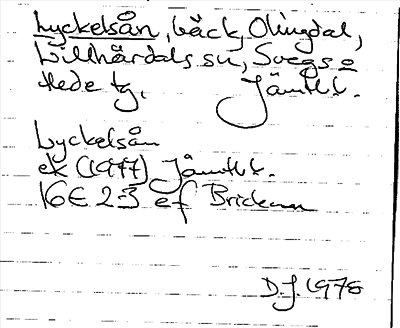 Lyckelsån, bäck, Olingdal,
Lillhärdals sn, Svegs o
Hede tg, Jämtl l.
Lyckelsån
ek (1977) Jämtl l.
16E 2-3 ef
D.J. 1978